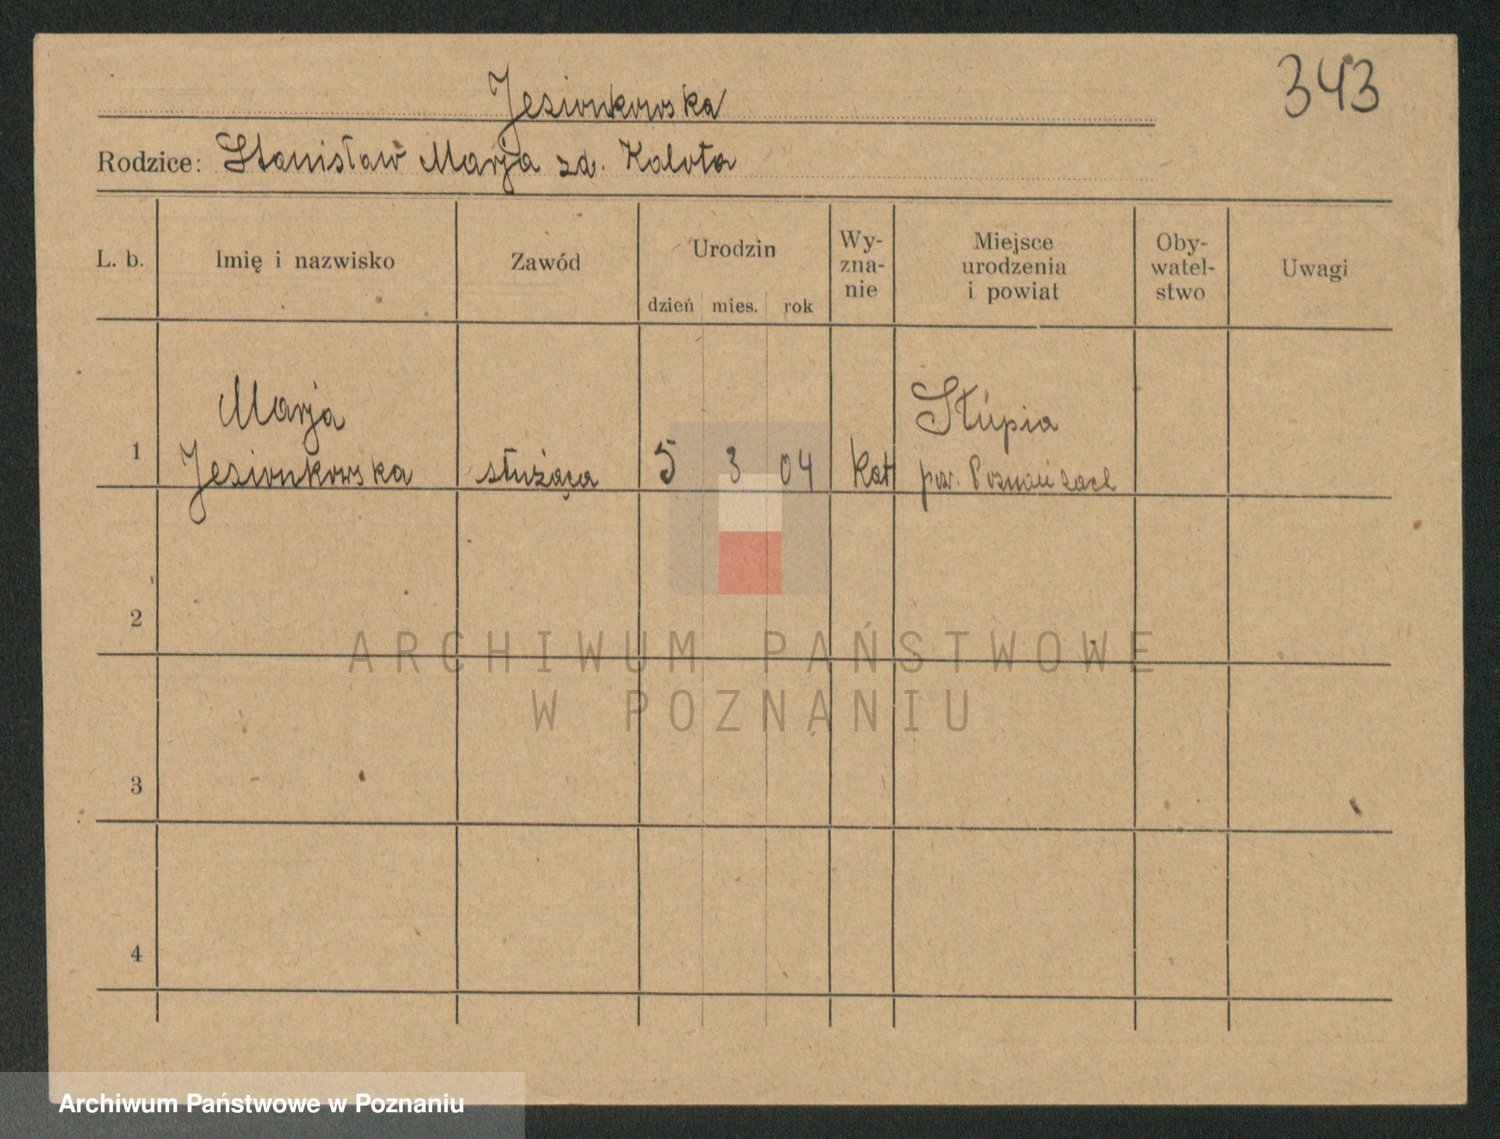 343
Jesionkowska
Rodzice: Stanisław Marja zd. Kalota
L. b. Imię i nazwisko Zawód Urodzin Wy- Miejsce Oby- Uwagi
zna- urodzenia watel-
nie i powiat stwo
dzień mies. rok
Marja Słupia
1 Jesionkowska służąca 5 3 04 kat pow. Poznań zach
2
ARCHIWUM PAŃSTWOWE
W POZNANIU
3
4
Archiwum Państwowe w Poznaniu